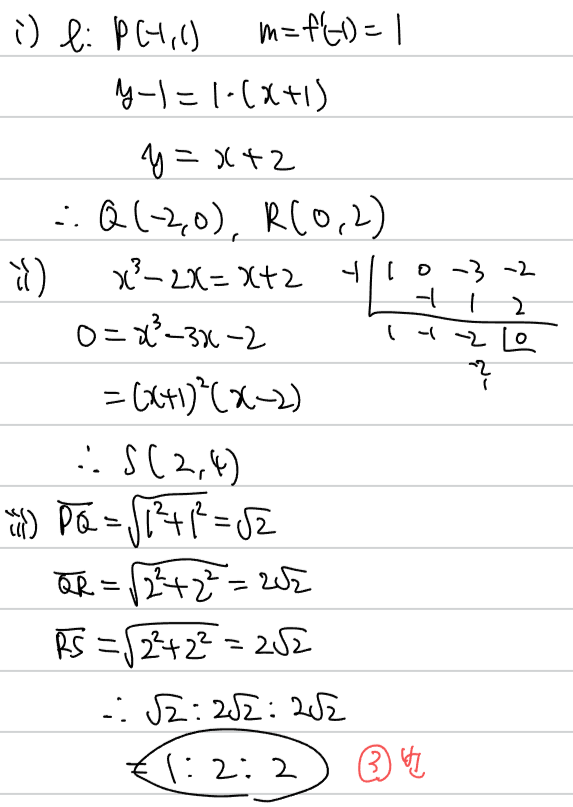 i) l: P(-1,1) m=f'(-1)=1
y-1=1·(x+1)
y=x+2
∴ Q(-2,0), R(0,2)
ii) x³-2x=x+2 -1| 1 0 -3 -2
-1 1 2
0=x³-3x-2 1 -1 -2 |0
-2
1
=(x+1)²(x-2)
∴ S(2,4)
iii) PQ̅=√1²+1²=√2
QR̅=√2²+2²=2√2
RS̅=√2²+2²=2√2
∴ √2:2√2:2√2
=1:2:2 ③번